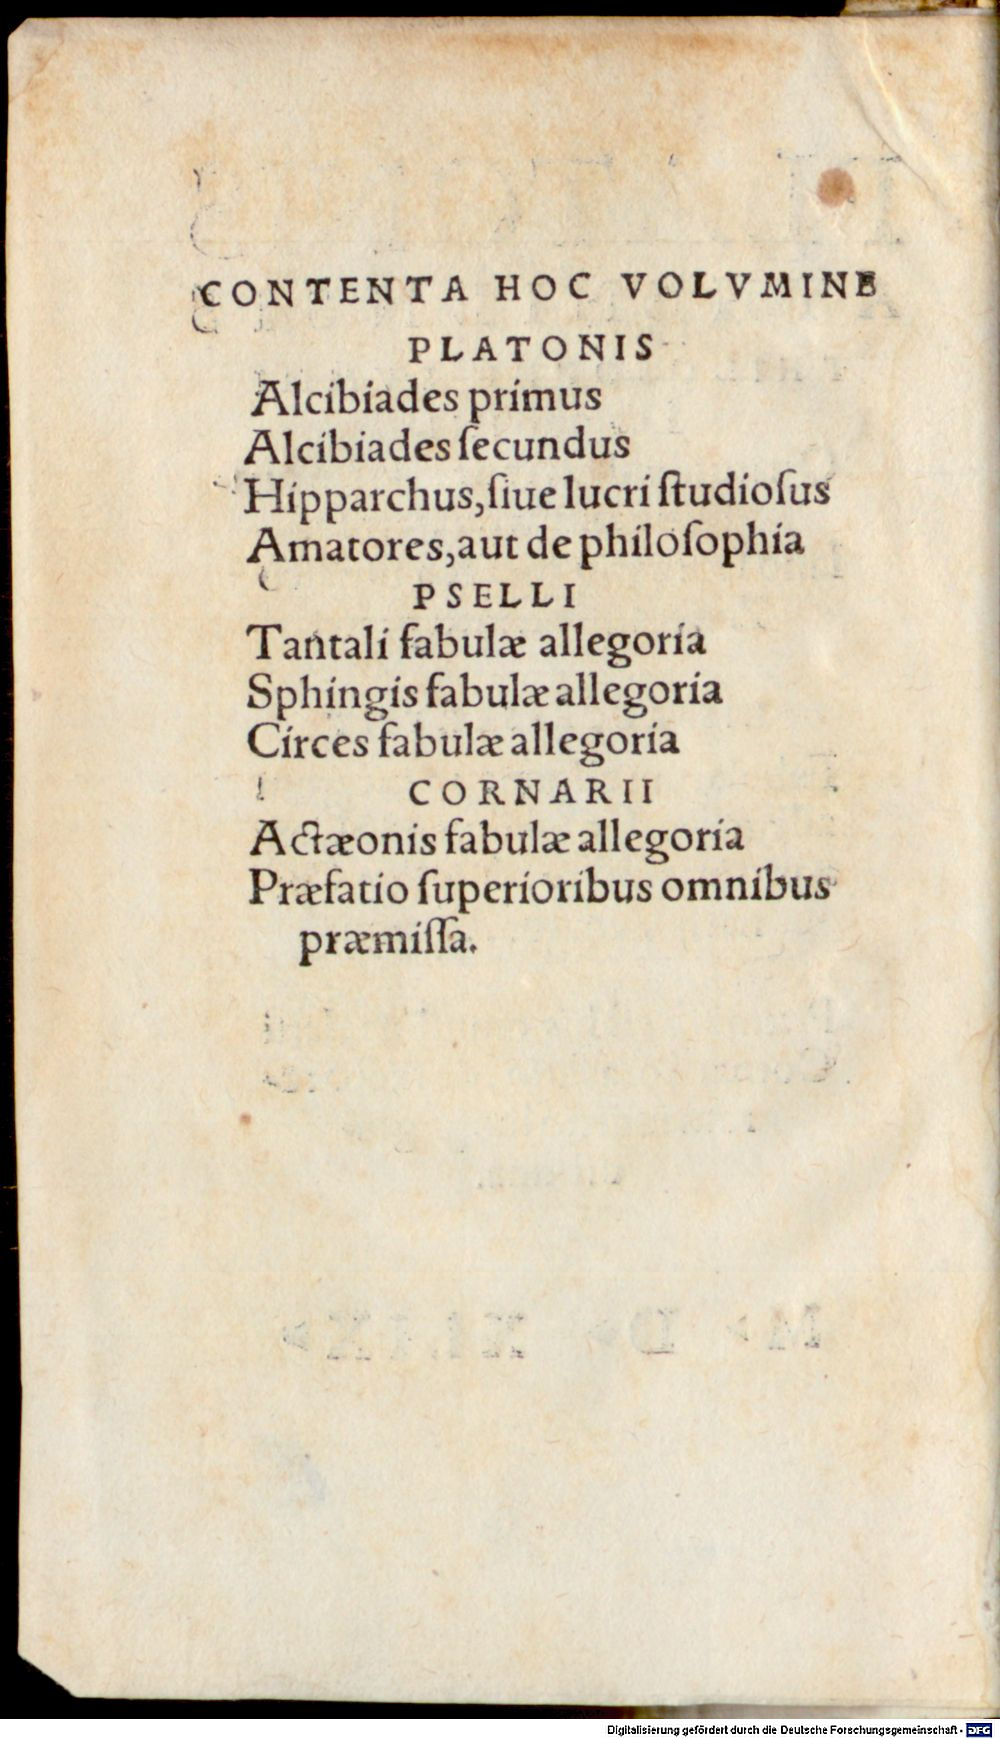 CONTENTA HOC VOLVMINE
PLATONIS
Alcibiades primus
Alcibiades ſecundus
Hipparchus, ſiue lucri ſtudioſus
Amatores, aut de philoſophia
PSELLI
Tantali fabulæ allegoria
Sphingis fabulæ allegoria
Circes fabulæ allegoria
CORNARII
Actæonis fabulæ allegoria
Præfatio ſuperioribus omnibus
præmiſſa.
Digitalisierung gefördert durch die Deutsche Forschungsgemeinschaft - DFG